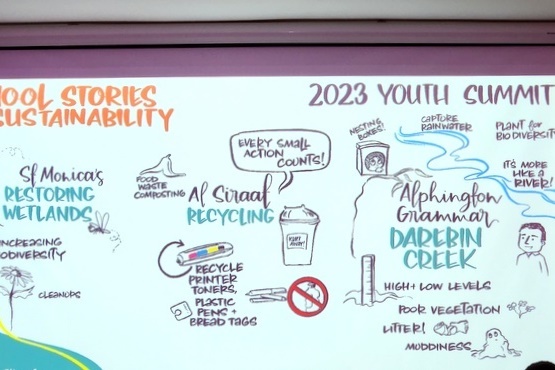 OOL STORIES
SUSTAINABILITY
2023 YOUTH SUMMIT
St Monica's
RESTORING
WETLANDS
INCREASING
BIODIVERSITY
CLEANUPS
FOOD
WASTE
COMPOSTING
EVERY SMALL
ACTION
COUNTS!
Al Siraat
RECYCLING
RECYCLE
PRINTER
TONERS,
PLASTIC
PENS +
BREAD TAGS
NESTING
BOXES!
CAPTURE
RAINWATER
PLANT for
BIODIVERSITY
IT'S MORE
LIKE A
RIVER!
Alphington
Grammar
DAREBIN
CREEK
HIGH + LOW LEVELS
POOR VEGETATION
LITTER!
MUDDINESS